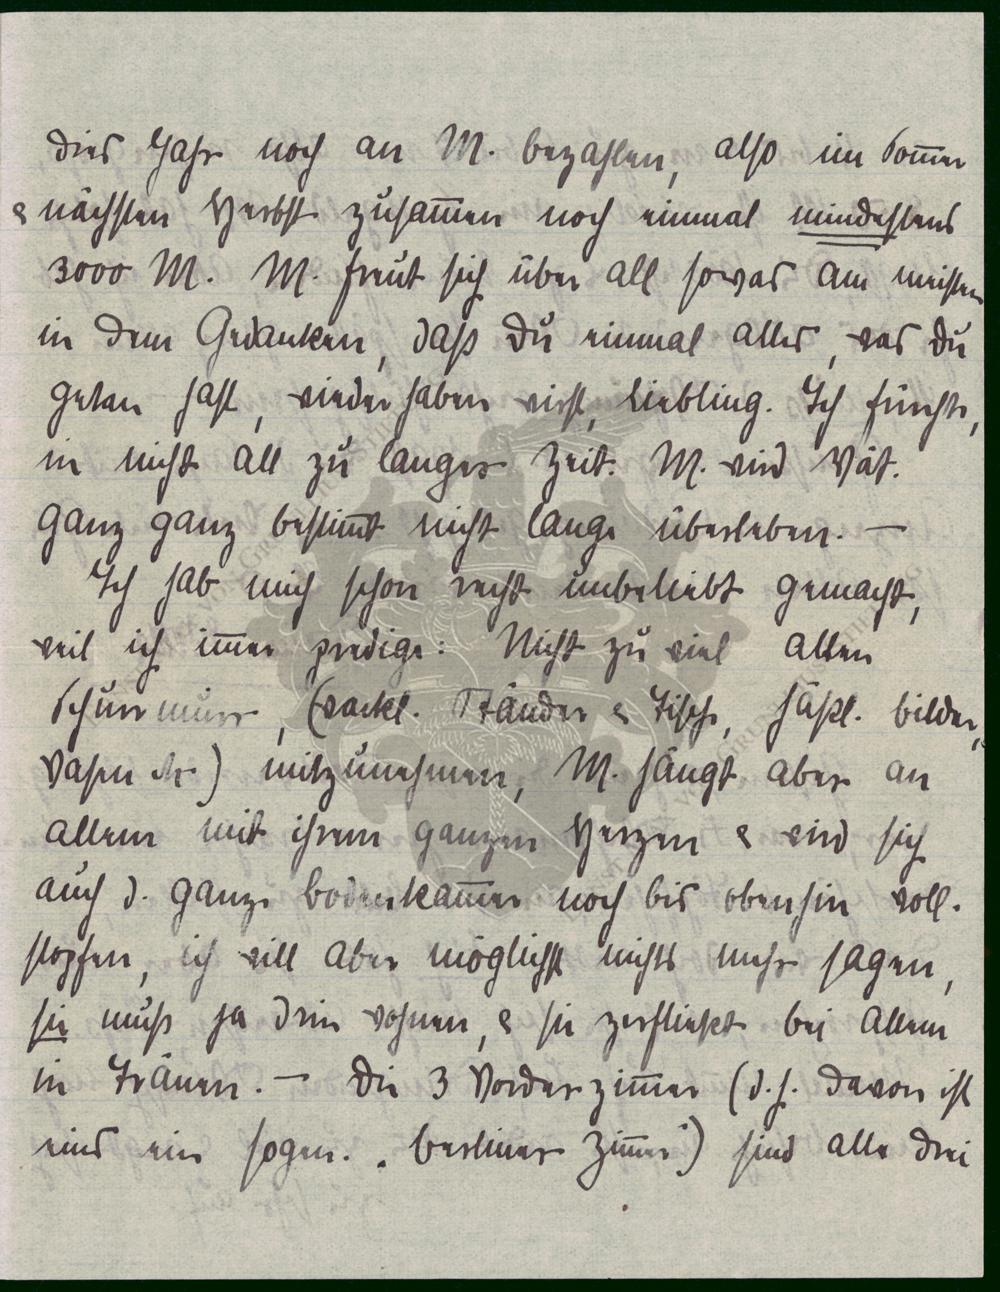 dies Jahr noch an M. bezahlen, also im Som̄er
& nächsten Herbst zusam̄en noch einmal mindestens
3000 M. M. freut sich über all sowas am meisten
in dem Gedanken, daß Du einmal alles, was Du
getan hast, wieder haben wirst, Liebling. Ich fürchte,
in nicht all zu langer Zeit. M. wird Vat.
ganz ganz bestim̄t nicht lange überleben. —
Ich hab mich schon recht unbeliebt gemacht,
weil ich im̄er predige: Nicht zu viel alten
Schurrmurr, (wackl. Ständer & Tische, häßl. Bilder,
Vasen etc.) mitzunehmen, M. hängt aber an
allem mit ihrem ganzen Herzen & wird sich
auch d. ganze Bodenkam̄er noch bis obenhin voll-
stopfen, ich will aber möglichst nichts mehr sagen,
sie muß ja drin wohnen, & sie zerfließt bei Allem
in Tränen. — Die 3 Vorderzim̄er (d.h. davon ist
eins ein sogen. „Berliner Zim̄er") sind alle drei